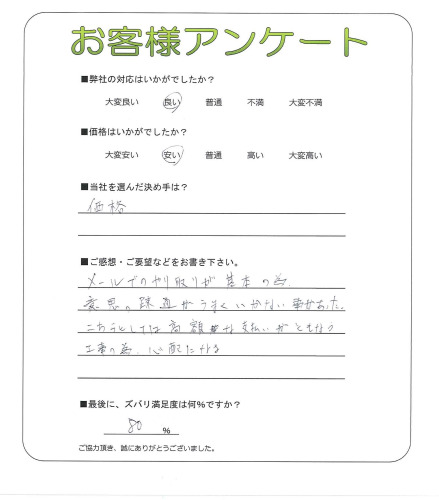 お客様アンケート
■弊社の対応はいかがでしたか？
大変良い 良い 普通 不満 大変不満
■価格はいかがでしたか？
大変安い 安い 普通 高い 大変高い
■当社を選んだ決め手は？
価格
■ご感想・ご要望などをお書き下さい。
メールでのやり取りが基本の為、
意思の疎通がうまくいかない事があった。
こちらとしては高額な支払いがともなう
工事の為、心配になる
■最後に、ズバリ満足度は何％ですか？
80 ％
ご協力頂き、誠にありがとうございました。